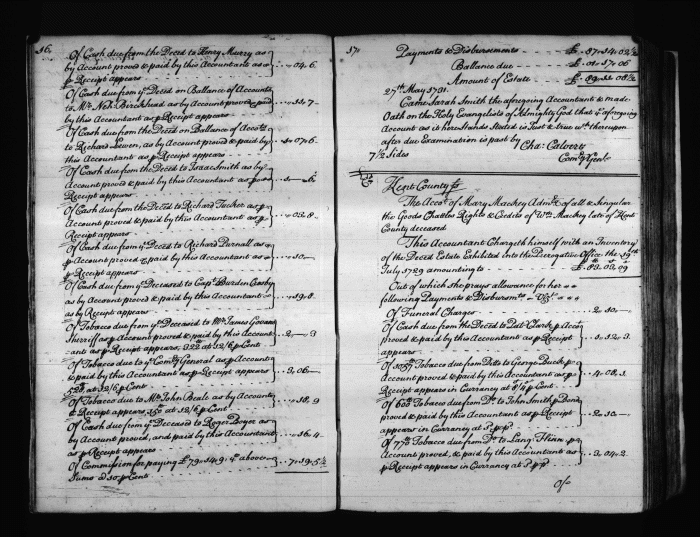 56.
Of Cash due from the Deced to Henry Murry as
by Account proved & paid by this Accountants as
p Receipt appears
Of Cash due from ye Deced on Ballance of Accounts
to Mr. Neh. Birckhead as by Account proved & paid
by this Accountant as p Receipt appears
Of Cash due from the Deced on Ballance of Accots.
to Richard Lewen, as by Account proved & paid by
this Accountant as p Receipt appears
Of Cash due from the Deced to Isaac Smith as by
Account proved & paid by this Accountant as p
Receipt appears
Of Cash due from the Deced to Richard Tucker as p
Account proved & paid by this Accountant as p
Receipt appears
Of Cash due from ye Deced to Richard Purnall as
p Account proved & paid by this Accountant as
p Receipt appears
Of Cash due from ye Deceased to Capt. Burden Crosby
as by Account proved & paid by this Accountant
as by Receipt appears
Of Tobacco due from ye Deceased to Mr. James
Sherriff as p Account proved & paid by this Account
ant as p Receipt appears, 322 at 12/6 p Cent
Of Tobacco due to ye Comry. General as p Account
& paid by this Accountant as p Receipt appears
528 at 12/6 p Cent
Of Tobacco due to Mr. John Beale as by Account
& Receipt appears 150 at 12/6 p Cent
Of Cash due from ye Deceased to Roger Boyce as
by Account proved, and paid by this Accountant
as p Receipt appears
Of Commission for paying £79.14.9¼ ye above
Sums a 10 p Cent 7.19.5½
57.
Payments & Disbursements £. 87.14.02½
Ballance due £. 01.17.06
Amount of Estate £. 89.11.08½
27th May 1731.
Came Sarah Smith the aforegoing Accountant & made
Oath on the Holy Evangelists of Almighty God that ye aforegoing
Account as it here stands Stated is Just & true wch. thereupon
after due Examination is past by
Cha: Calvert
Comry. Genl.
7½ Sides
Kent County ss
The Accot. of Mary Mackey Admx. of all & Singular
the Goods Chattles Rights & Credits of Wm. Mackey late of Kent
County deceased
This Accountant Chargeth himself with an Inventory
of the Deced Estate Exhibited into the Prerogative Office the 19th
July 1729 amounting to £. 83.03.09
Out of which She prays allowance for her
following Payments & Disbursmts. Vizt.
Of Funeral Charges 2.10.
Of Cash due from the Deced to Patt Clark p Acco
proved & paid by this Accountant as p Receipt
appears
Of Tobacco due from Do. to George Buck p
Account proved & paid by this Accountant as p
Receipt appears in Currancy at p Cent 4.08.1
Of 600 Tobacco due from Do. to John Smith p Bond
proved & paid by this Accountant as p Receipt
appears in Currancy at P.p.p 2.10.
Of 770 Tobacco due from Do. to Lang. Flinn p
Account proved, & paid by this Accountant as
p Receipt appears in Currancy at P.p.p 3.04.2
Of